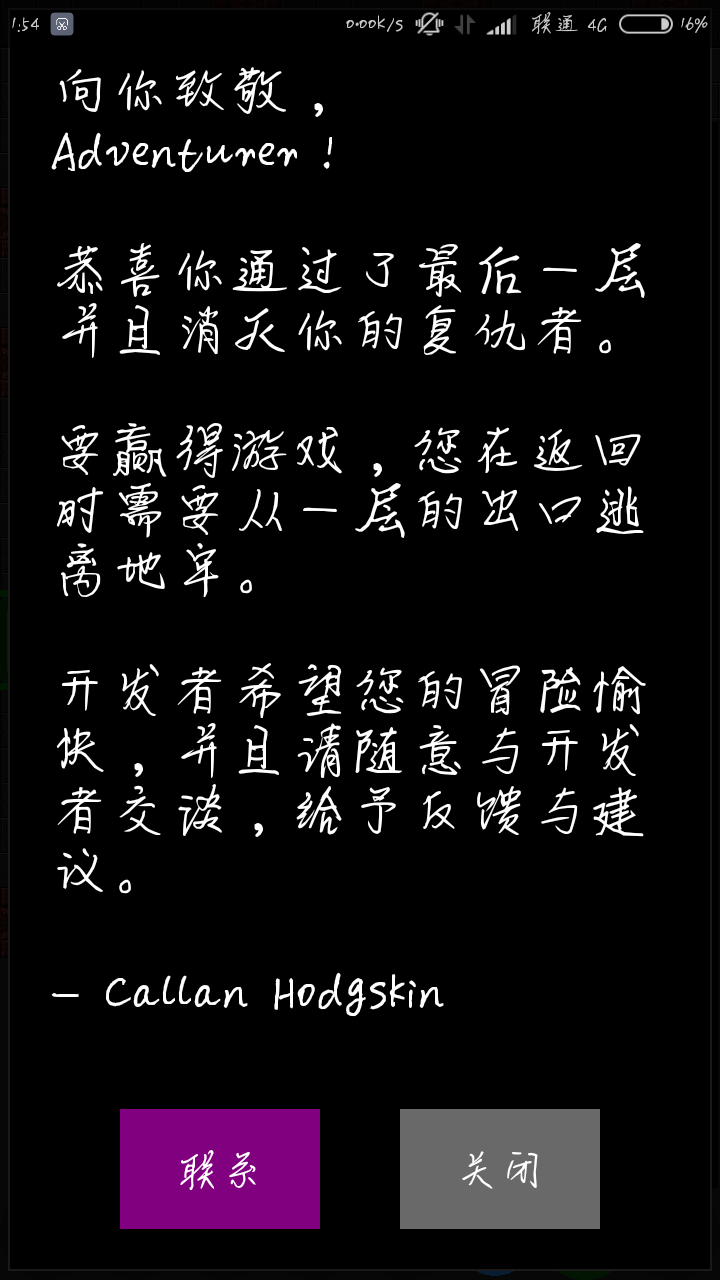 1:54 0.00K/S 联通 4G 16%
向你致敬，
Adventurer！
恭喜你通过了最后一层
并且消灭你的复仇者。
要赢得游戏，您在返回
时需要从一层的出口逃
离地牢。
开发者希望您的冒险愉
快，并且请随意与开发
者交谈，给予反馈与建
议。
— Callan Hodgskin
联系 关闭